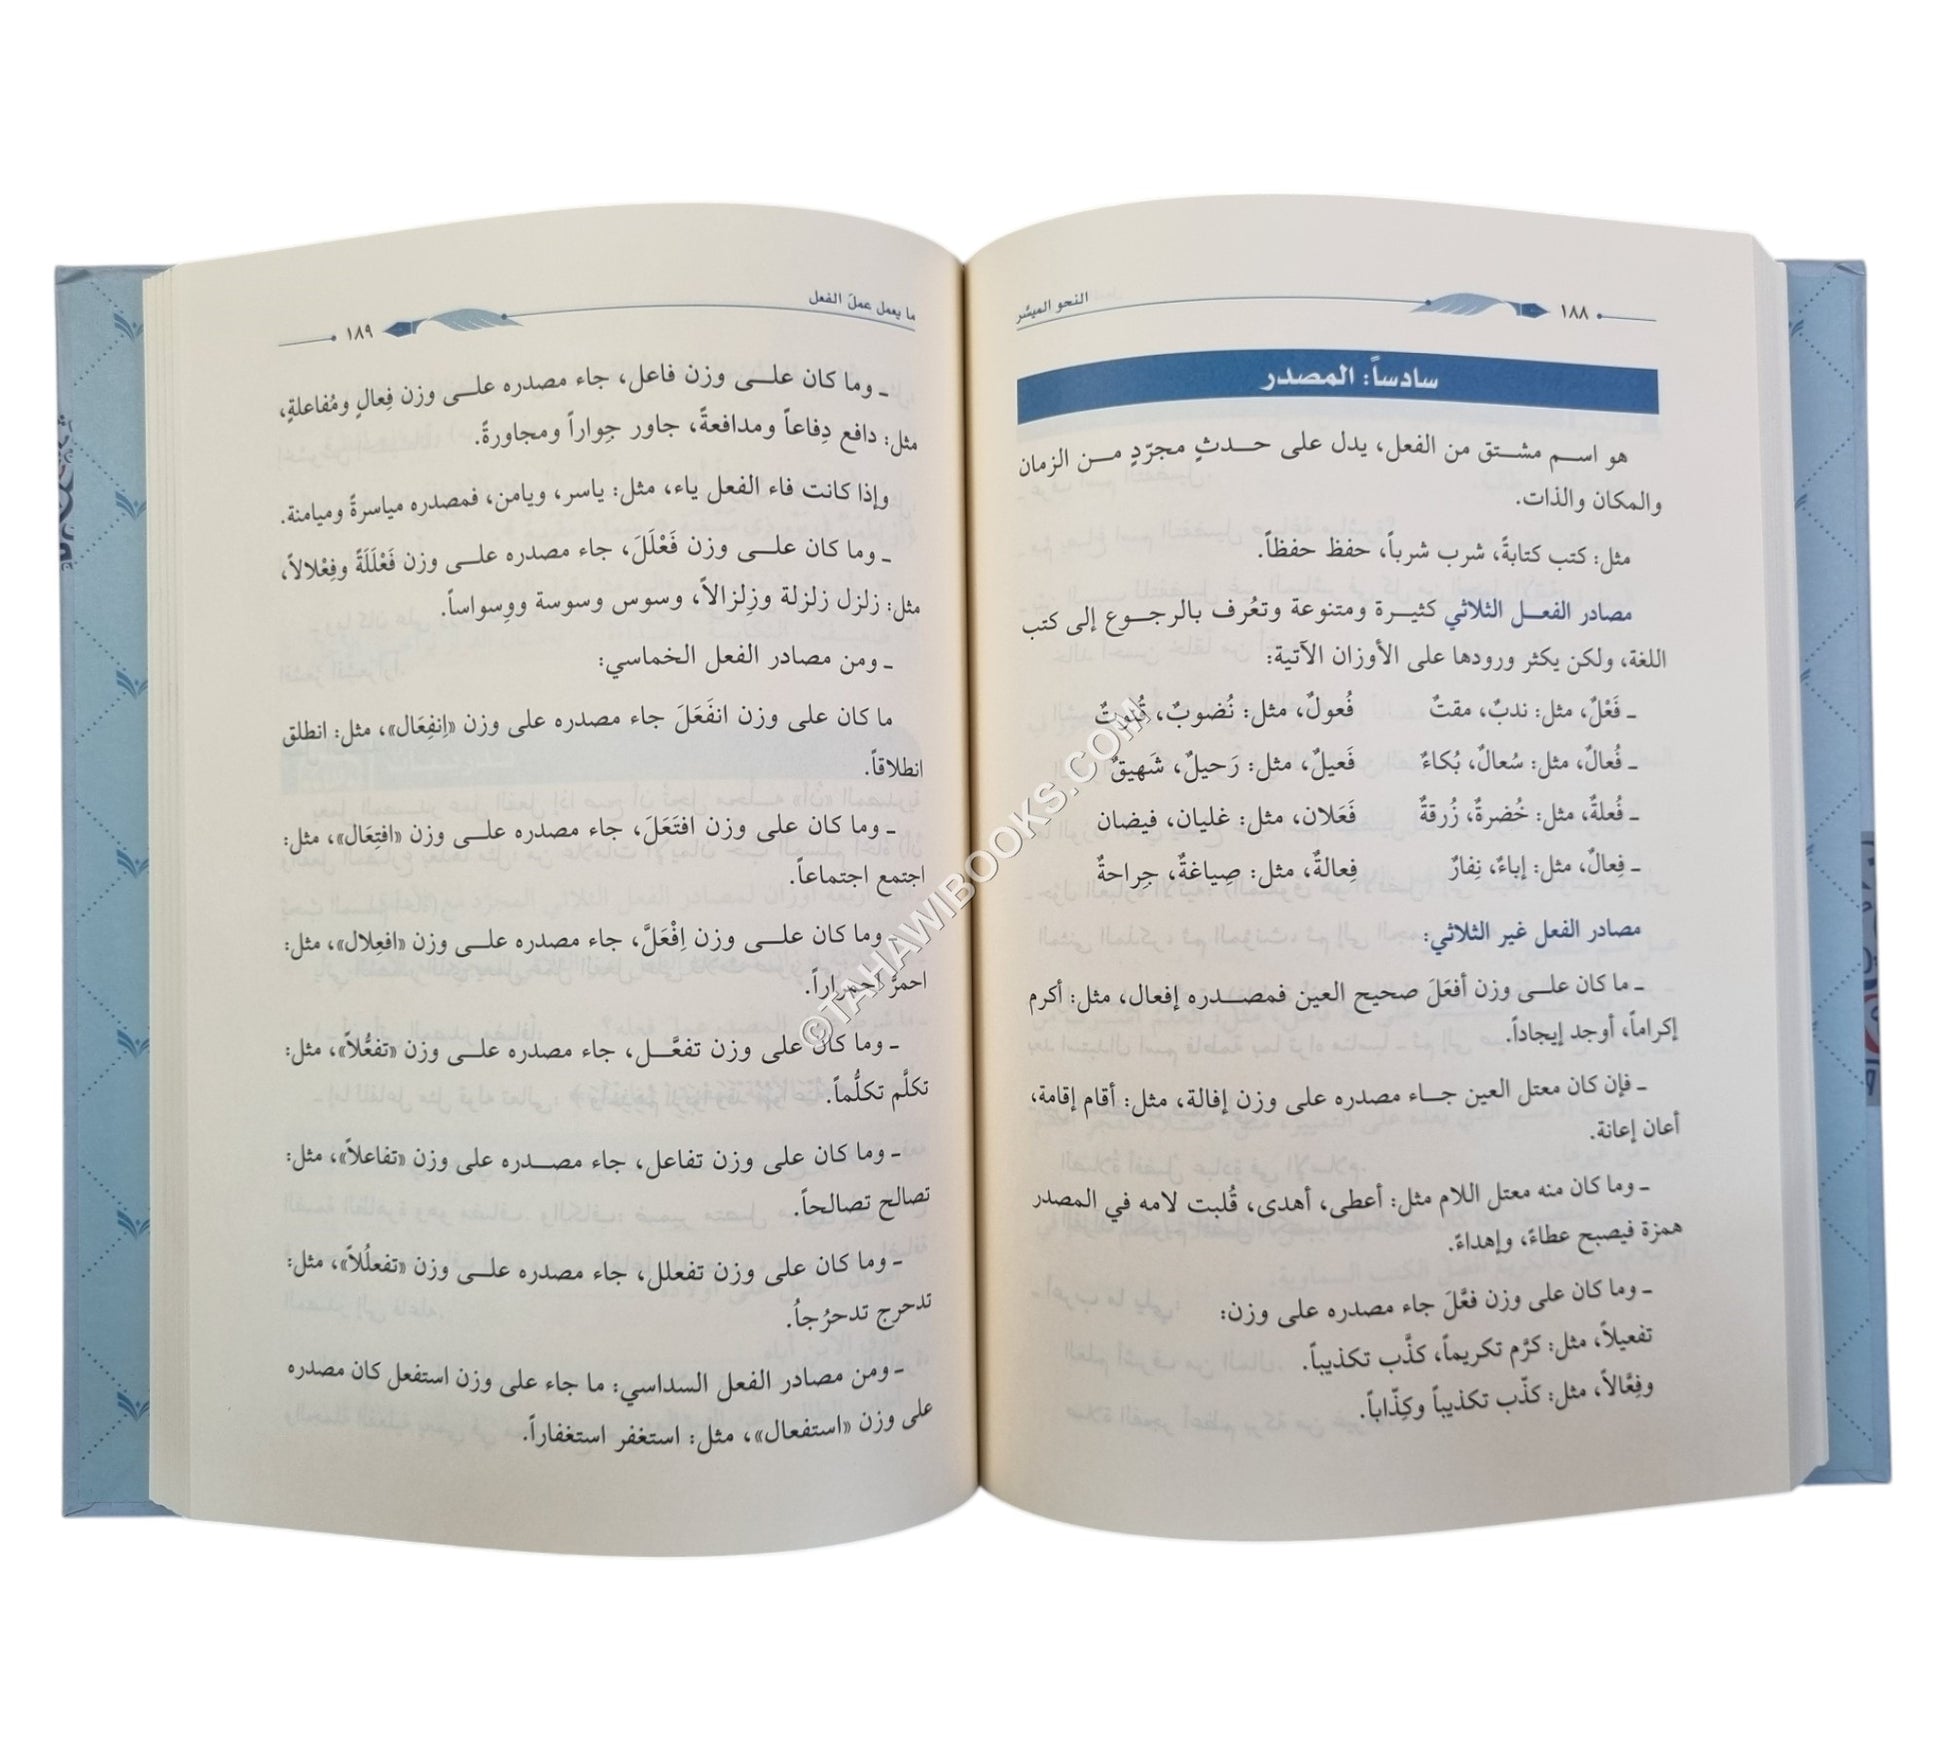 ١٨٨
النحو الميسَّر
سادساً: المصدر
هو اسم مشتق من الفعل، يدل على حدثٍ مجرّدٍ من الزمان
والمكان والذات.
مثل: كتب كتابةً، شرب شرباً، حفظ حفظاً.
مصادر الفعل الثلاثي كثيرة ومتنوعة وتعُرف بالرجوع إلى كتب
اللغة، ولكن يكثر ورودها على الأوزان الآتية:
ـ فَعْلٌ، مثل: ندبٌ، مقتٌ فُعولٌ، مثل: نُضوبٌ، قُلوتٌ
ـ فُعالٌ، مثل: سُعالٌ، بُكاءٌ فَعيلٌ، مثل: رَحيلٌ، شَهيقٌ
ـ فُعلةٌ، مثل: خُضرةٌ، زُرقةٌ فَعَلان، مثل: غليان، فيضان
ـ فِعالٌ، مثل: إباءٌ، نِفارٌ فِعالةٌ، مثل: صِياغةٌ، جِراحةٌ
مصادر الفعل غير الثلاثي:
ـ ما كان على وزن أفعَلَ صحيح العين فمصدره إفعال، مثل: أكرم
إكراماً، أوجد إيجاداً.
ـ فإن كان معتل العين جاء مصدره على وزن إفالة، مثل: أقام إقامة،
أعان إعانة.
ـ وما كان منه معتل اللام مثل: أعطى، أهدى، قُلبت لامه في المصدر
همزة فيصبح عطاءً، وإهداءً.
ـ وما كان على وزن فعَّلَ جاء مصدره على وزن:
تفعيلاً، مثل: كرَّم تكريماً، كذَّب تكذيباً.
وفِعَّالاً، مثل: كذّب تكذيباً وكِذّاباً.
ما يعمل عملَ الفعل
١٨٩
ـ وما كان على وزن فاعل، جاء مصدره على وزن فِعالٍ ومُفاعلةٍ،
مثل: دافع دِفاعاً ومدافعةً، جاور جِواراً ومجاورةً.
وإذا كانت فاء الفعل ياء، مثل: ياسر، ويامن، فمصدره مياسرةً وميامنة.
ـ وما كان على وزن فَعْلَلَ، جاء مصدره على وزن فَعْلَلَةً وفِعْلالاً،
مثل: زلزل زلزلة وزِلزالاً، وسوس وسوسة ووِسواساً.
ـ ومن مصادر الفعل الخماسي:
ما كان على وزن انفَعَلَ جاء مصدره على وزن «اِنفِعَال»، مثل: انطلق
انطلاقاً.
ـ وما كان على وزن افتَعَلَ، جاء مصدره على وزن «افتِعَال»، مثل:
اجتمع اجتماعاً.
ـ وما كان على وزن اِفْعَلَّ، جاء مصدره على وزن «افعِلال»، مثل:
احمرَّ احمراراً.
ـ وما كان على وزن تفعَّل، جاء مصدره على وزن «تفعُّلاً»، مثل:
تكلَّم تكلُّماً.
ـ وما كان على وزن تفاعل، جاء مصدره على وزن «تفاعلاً»، مثل:
تصالح تصالحاً.
ـ وما كان على وزن تفعلل، جاء مصدره على وزن «تفعلُلاً»، مثل:
تدحرج تدحرُجاُ.
ـ ومن مصادر الفعل السداسي: ما جاء على وزن استفعل كان مصدره
على وزن «استفعال»، مثل: استغفر استغفاراً.
©TAHAWIBOOKS.COM